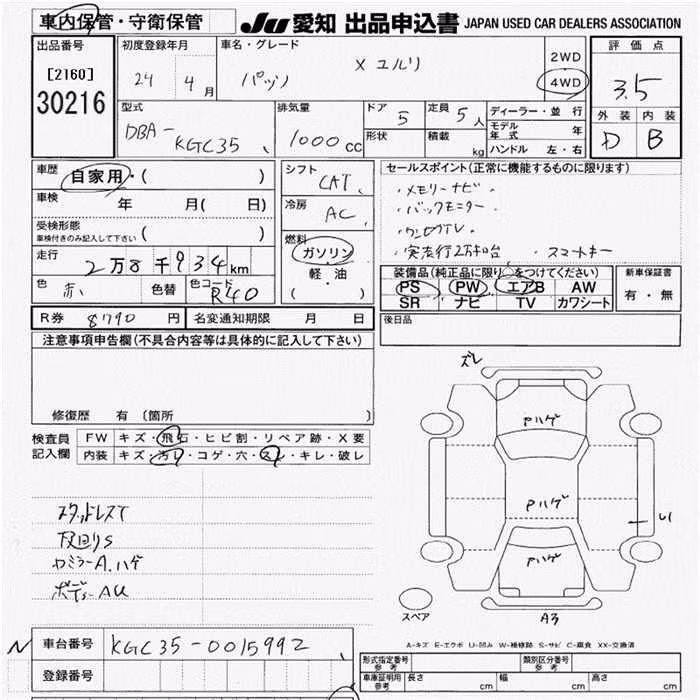 車内保管・守衛保管
JU 愛知 出品申込書 JAPAN USED CAR DEALERS ASSOCIATION
出品番号
[2160]
30216
初度登録年月
24 4月
車名・グレード
パッソ X ユルリ
2WD
4WD
評価点
3.5
外装 内装
D B
型式
DBA-KGC35
排気量
1000cc
ドア 5
形状
定員 5人
積載 kg
ディーラー・並行
モデル年式 年
ハンドル 左・右
車歴
自家用・( )
車検 年 月( 日)
受検形態
車検付きのみ記入して下さい ( )
走行
2万8千934km
色 赤
色替
色コード R40
シフト
CAT
冷房
AC
燃料
ガソリン
・
軽・油
( )
セールスポイント(正常に機能するものに限ります)
・メモリーナビ
・バックモニター
・ワンセグTV
・実走行2万キロ台 ・スマートキー
装備品(純正品に限り○をつけてください)
PS PW エアB AW
SR ナビ TV カワシート
新車保証書
有・無
R券 8790円
名変通知期限 月 日
後日品
注意事項申告欄(不具合内容等は具体的に記入して下さい)
修復歴 有 〔箇所 〕
検査員
記入欄
FW キズ・飛石・ヒビ割・リペア跡・X要
内装 キズ・汚レ・コゲ・穴・スレ・キレ・破レ
スタッドレスT
下回りS
ドアミラーA.ハゲ
ボディーAU
ズレ
Pハゲ
Pハゲ
Pハゲ
U1
A3
スペア
A-キズ E-エクボ U-凹み W-補修跡 S-サビ C-腐食 XX-交換済
N
車台番号 KGC35-0015992
登録番号
形式指定番号
参考
類別区分番号
参考
車庫証明用
参考
長さ cm 幅 cm 高さ cm